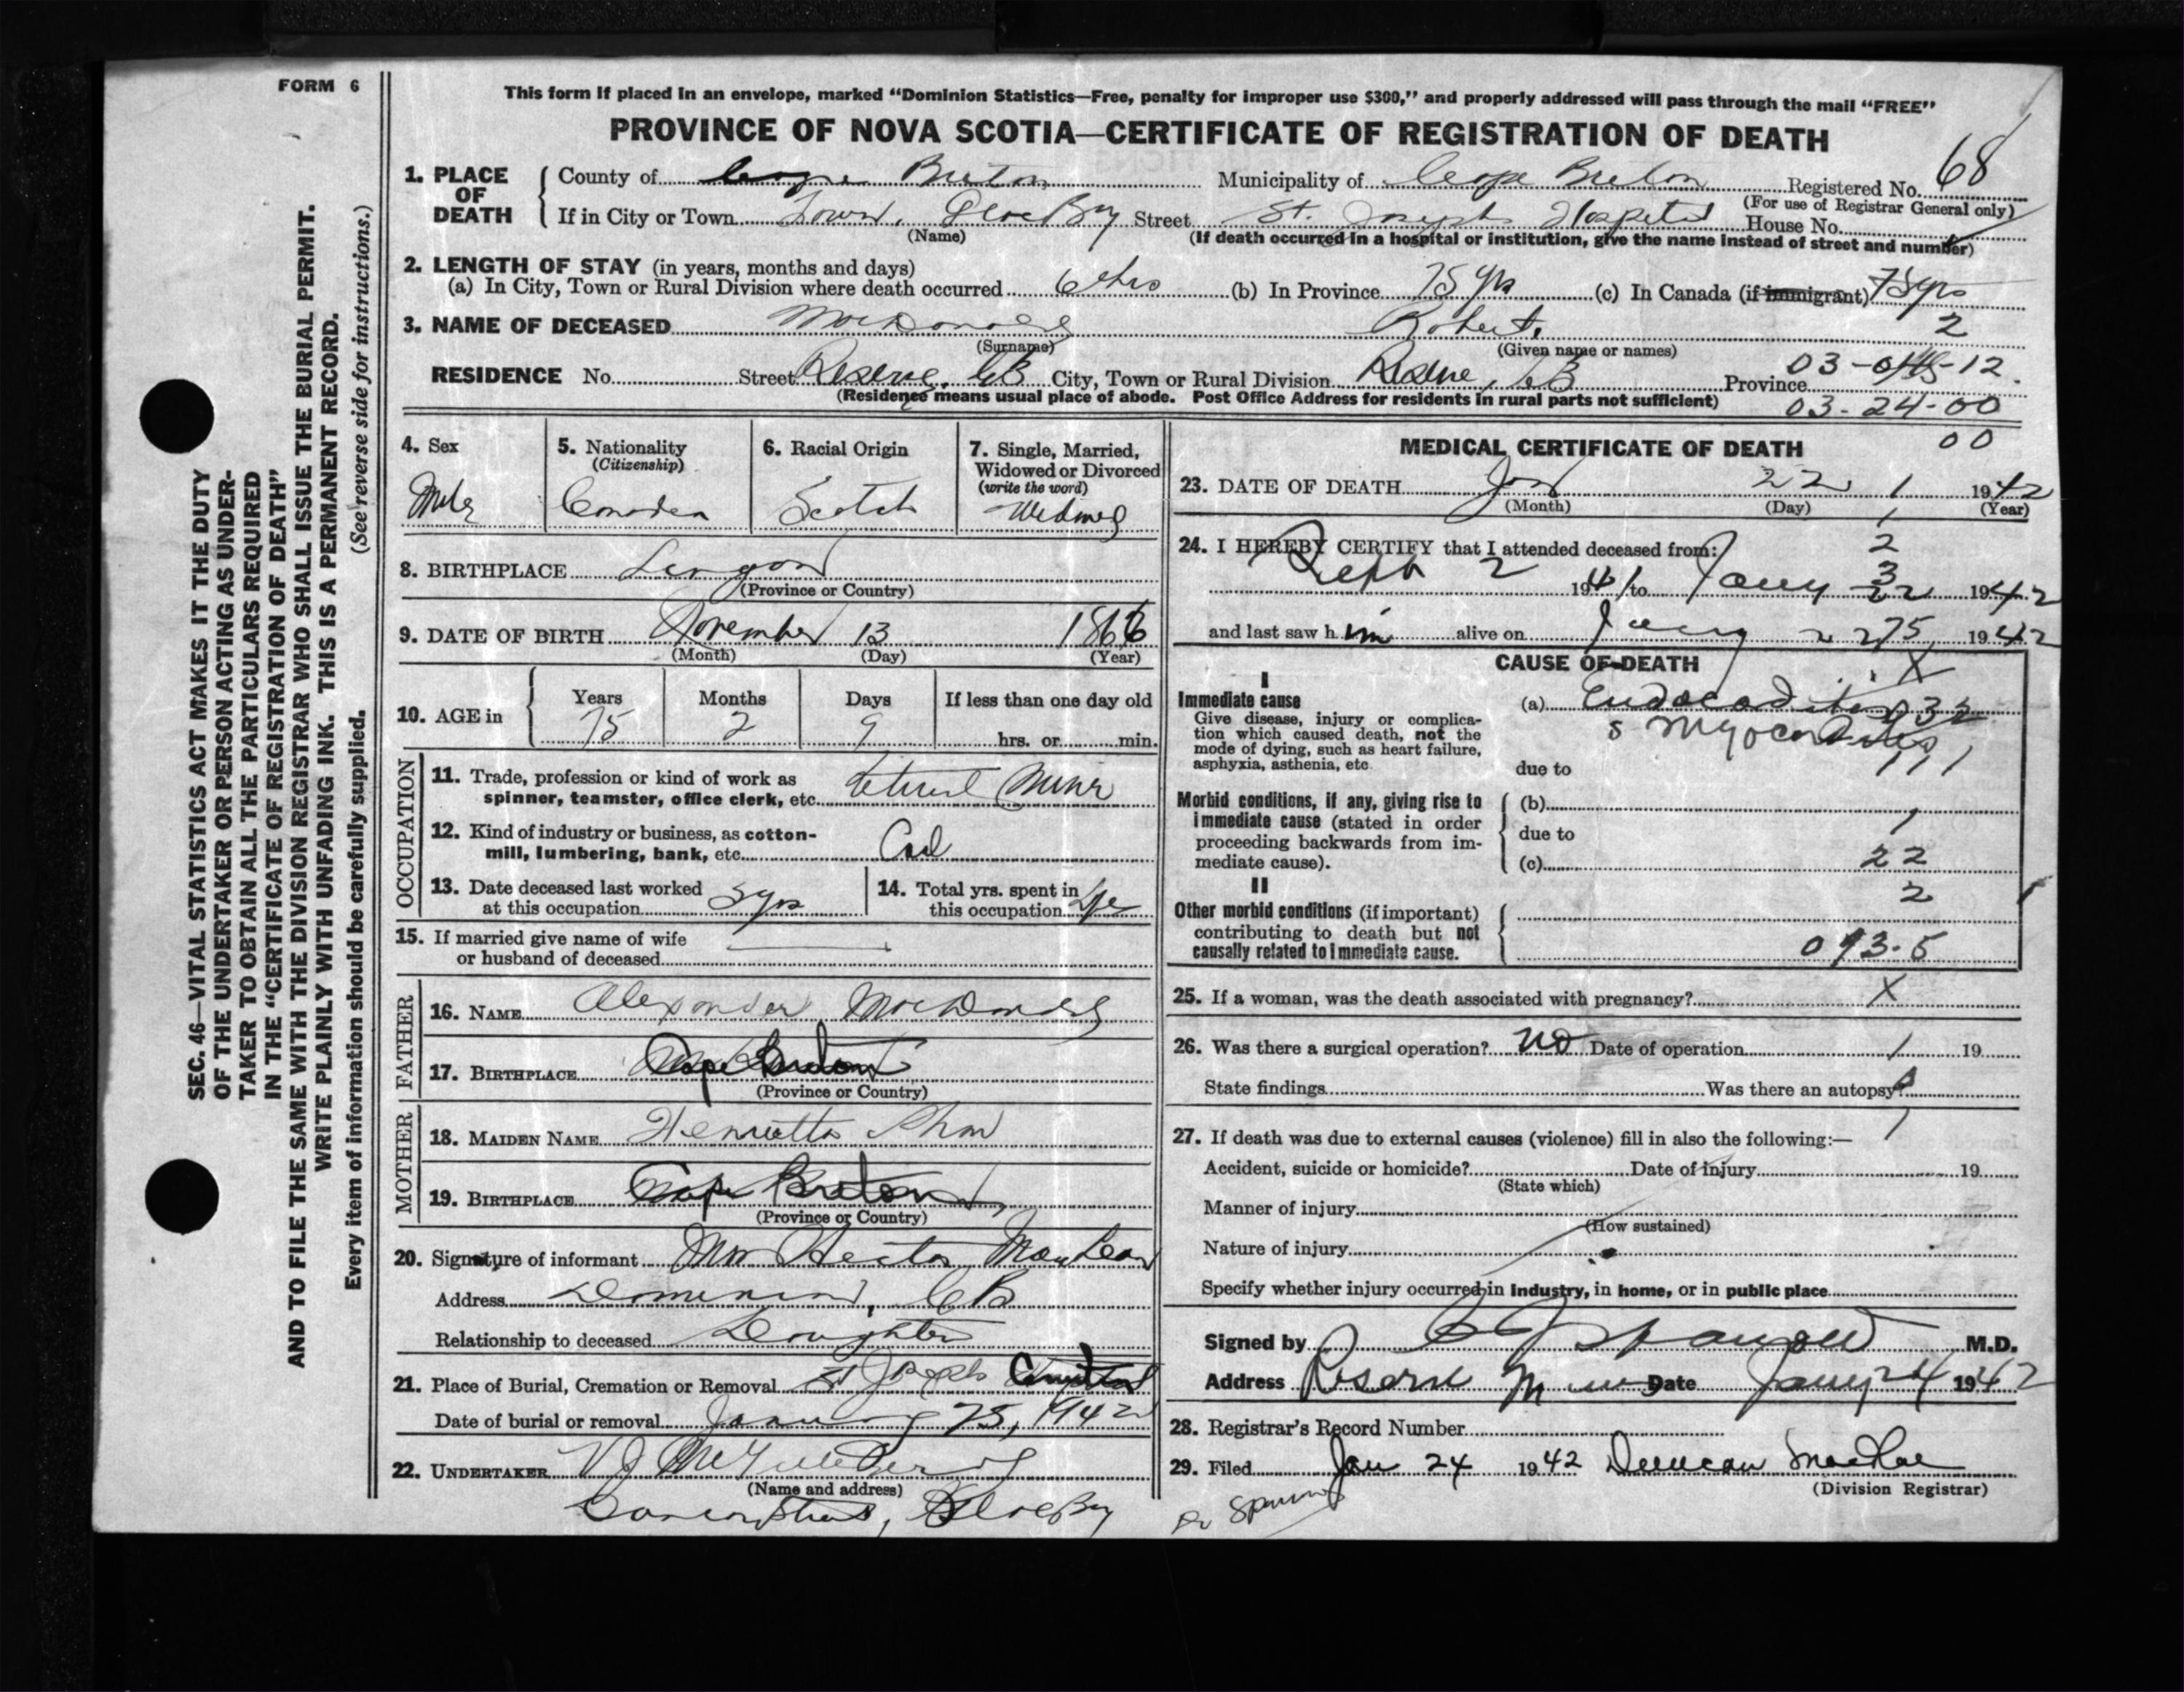 FORM 6
This form if placed in an envelope, marked “Dominion Statistics—Free, penalty for improper use $300,” and properly addressed will pass through the mail “FREE”
PROVINCE OF NOVA SCOTIA—CERTIFICATE OF REGISTRATION OF DEATH
SEC. 46—VITAL STATISTICS ACT MAKES IT THE DUTY
OF THE UNDERTAKER OR PERSON ACTING AS UNDER-
TAKER TO OBTAIN ALL THE PARTICULARS REQUIRED
IN THE “CERTIFICATE OF REGISTRATION OF DEATH”
AND TO FILE THE SAME WITH THE DIVISION REGISTRAR WHO SHALL ISSUE THE BURIAL PERMIT.
WRITE PLAINLY WITH UNFADING INK. THIS IS A PERMANENT RECORD.
Every item of information should be carefully supplied. (See reverse side for instructions.)
1. PLACE OF DEATH County of Cape Breton Municipality of Cape Breton Registered No. 68
(For use of Registrar General only)
If in City or Town Town, Glace Bay Street St. Josephs Hospital House No.
(Name) (If death occurred in a hospital or institution, give the name instead of street and number)
2. LENGTH OF STAY (in years, months and days)
(a) In City, Town or Rural Division where death occurred 6 hrs (b) In Province 75 yrs (c) In Canada (if immigrant) 75 yrs
3. NAME OF DECEASED MacDonald Robert. 2
(Surname) (Given name or names)
RESIDENCE No. Street Reserve, CB City, Town or Rural Division Reserve, CB Province 03- -12
(Residence means usual place of abode. Post Office Address for residents in rural parts not sufficient) 03-24-00
00
4. Sex
Male
5. Nationality
(Citizenship)
Canaden
6. Racial Origin
Scotch
7. Single, Married,
Widowed or Divorced
(write the word)
Widowed
8. BIRTHPLACE Lingan
(Province or Country)
9. DATE OF BIRTH November 13 1866
(Month) (Day) (Year)
10. AGE in Years Months Days If less than one day old
75 2 9 hrs. or min.
OCCUPATION
11. Trade, profession or kind of work as
spinner, teamster, office clerk, etc. retired Miner
12. Kind of industry or business, as cotton-
mill, lumbering, bank, etc. Coal
13. Date deceased last worked
at this occupation yrs
14. Total yrs. spent in
this occupation life
15. If married give name of wife
or husband of deceased
FATHER
16. NAME Alexander MacDonald
17. BIRTHPLACE Cape Breton
(Province or Country)
MOTHER
18. MAIDEN NAME Henrietta
19. BIRTHPLACE Cape Breton
(Province or Country)
20. Signature of informant Mrs Hector MacLean
Address Dominion, CB
Relationship to deceased Daughter
21. Place of Burial, Cremation or Removal St Josephs
Date of burial or removal January 25, 1942
22. UNDERTAKER V J
(Name and address)
Glace Bay
MEDICAL CERTIFICATE OF DEATH
23. DATE OF DEATH Jan 22 1 1942
(Month) (Day) (Year)
24. I HEREBY CERTIFY that I attended deceased from:
Sept 2 1941 to Jany 22 1942
and last saw him alive on Jany 22 75 1942
CAUSE OF DEATH
I
Immediate cause
Give disease, injury or complica-
tion which caused death, not the
mode of dying, such as heart failure,
asphyxia, asthenia, etc.
(a) Endocarditis 932
Myocarditis
due to 111
Morbid conditions, if any, giving rise to
immediate cause (stated in order
proceeding backwards from im-
mediate cause).
(b)
due to 1
(c) 22
II 2
Other morbid conditions (if important)
contributing to death but not
causally related to immediate cause. 093-5
25. If a woman, was the death associated with pregnancy? X
26. Was there a surgical operation? no Date of operation 19
State findings Was there an autopsy?
27. If death was due to external causes (violence) fill in also the following:—
Accident, suicide or homicide? Date of injury 19
(State which)
Manner of injury
(How sustained)
Nature of injury
Specify whether injury occurred in industry, in home, or in public place
Signed by M.D.
Address Reserve Mines Date Jany 24 1942
28. Registrar’s Record Number
29. Filed Jan 24 1942 Duncan MacRae
(Division Registrar)